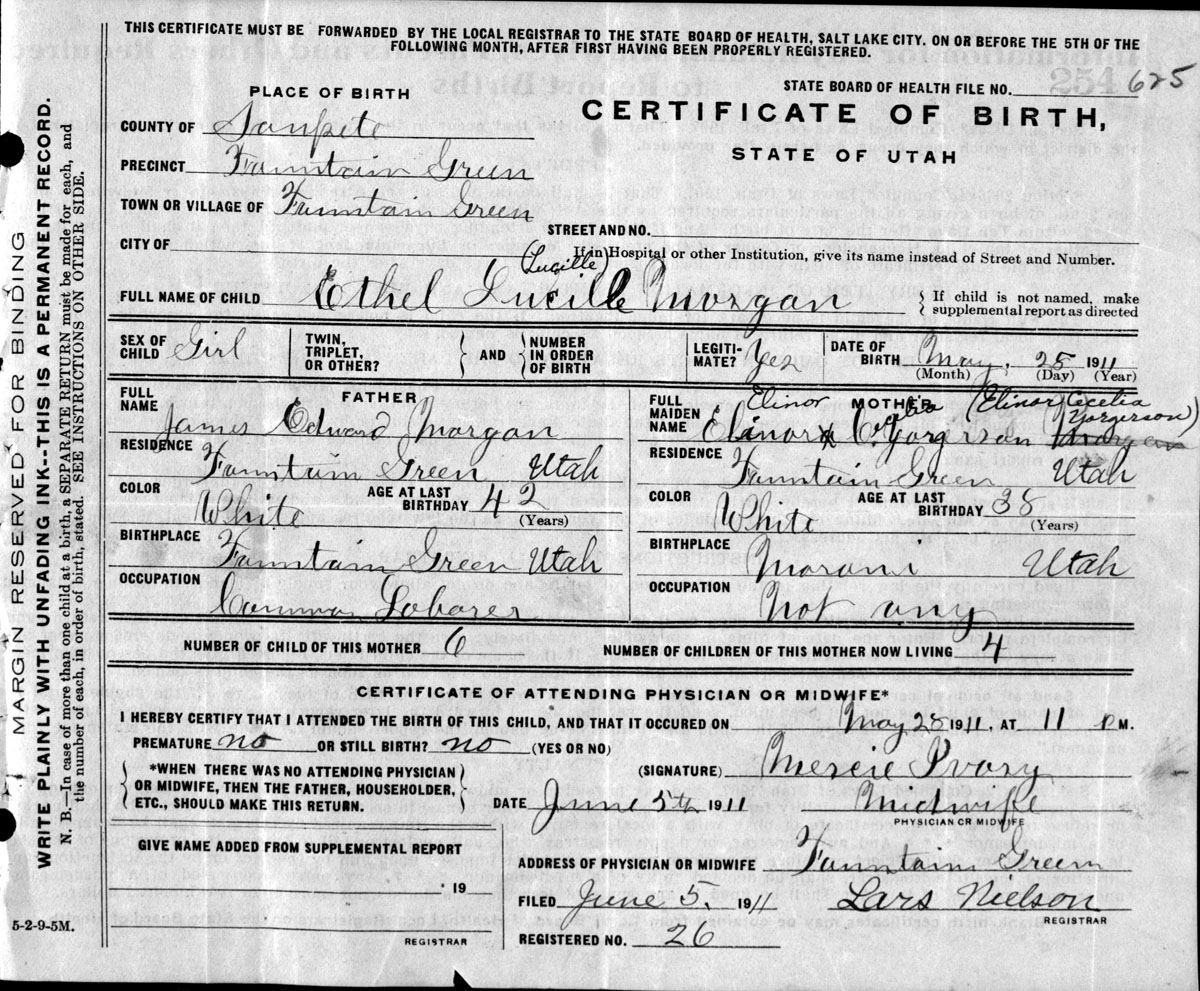 THIS CERTIFICATE MUST BE FORWARDED BY THE LOCAL REGISTRAR TO THE STATE BOARD OF HEALTH, SALT LAKE CITY. ON OR BEFORE THE 5TH OF THE
FOLLOWING MONTH, AFTER FIRST HAVING BEEN PROPERLY REGISTERED.
STATE BOARD OF HEALTH FILE NO. 254 625
PLACE OF BIRTH
CERTIFICATE OF BIRTH,
STATE OF UTAH
COUNTY OF Sanpete
PRECINCT Fountain Green
TOWN OR VILLAGE OF Fountain Green
STREET AND NO.
CITY OF
If in Hospital or other Institution, give its name instead of Street and Number.
(Lucille)
FULL NAME OF CHILD Ethel Lucille Morgan
{ If child is not named, make
supplemental report as directed
SEX OF CHILD Girl
TWIN, TRIPLET, OR OTHER?
AND
NUMBER IN ORDER OF BIRTH
LEGITIMATE? Yes
DATE OF BIRTH May, 25 1911
(Month) (Day) (Year)
FATHER
FULL NAME James Edward Morgan
RESIDENCE Fountain Green Utah
COLOR White
AGE AT LAST BIRTHDAY 42
(Years)
BIRTHPLACE Fountain Green Utah
OCCUPATION Common Laborer
MOTHER
Elinor (Elinor Cecelia
Yorgerson)
FULL MAIDEN NAME Elinor Yorgerson
RESIDENCE Fountain Green Utah
COLOR White
AGE AT LAST BIRTHDAY 38
(Years)
BIRTHPLACE Moroni Utah
OCCUPATION Not any
NUMBER OF CHILD OF THIS MOTHER 6
NUMBER OF CHILDREN OF THIS MOTHER NOW LIVING 4
CERTIFICATE OF ATTENDING PHYSICIAN OR MIDWIFE*
I HEREBY CERTIFY THAT I ATTENDED THE BIRTH OF THIS CHILD, AND THAT IT OCCURED ON May 25 1911, AT 11 P M.
PREMATURE no OR STILL BIRTH? no (YES OR NO)
*WHEN THERE WAS NO ATTENDING PHYSICIAN
OR MIDWIFE, THEN THE FATHER, HOUSEHOLDER,
ETC., SHOULD MAKE THIS RETURN.
(SIGNATURE) Mercie Ivory
DATE June 5th 1911
Midwife
PHYSICIAN OR MIDWIFE
GIVE NAME ADDED FROM SUPPLEMENTAL REPORT
19
REGISTRAR
ADDRESS OF PHYSICIAN OR MIDWIFE Fountain Green
FILED June 5, 1911 Lars Nielson
REGISTRAR
REGISTERED NO. 26
5-2-9-5M.
MARGIN RESERVED FOR BINDING
WRITE PLAINLY WITH UNFADING INK--THIS IS A PERMANENT RECORD.
N. B.—In case of more than one child at a birth, a SEPARATE RETURN must be made for each, and
the number of each, in order of birth, stated. SEE INSTRUCTIONS ON OTHER SIDE.